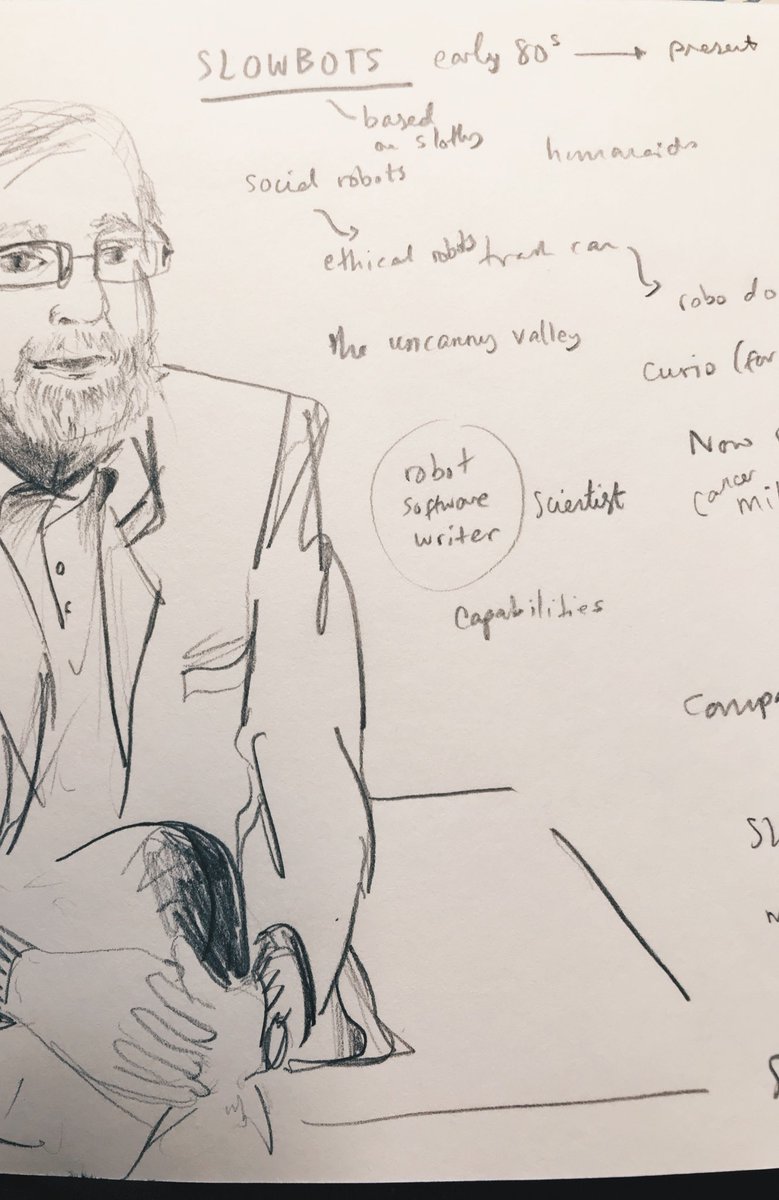 SLOWBOTS early 80s → present
based
on sloths
humanoids
social robots
ethical robots trash can
robo do
the uncanny valley
Curio (for
Now
robot
software
writer
scientist
Cancer
mil
Capabilities
Compa
SL